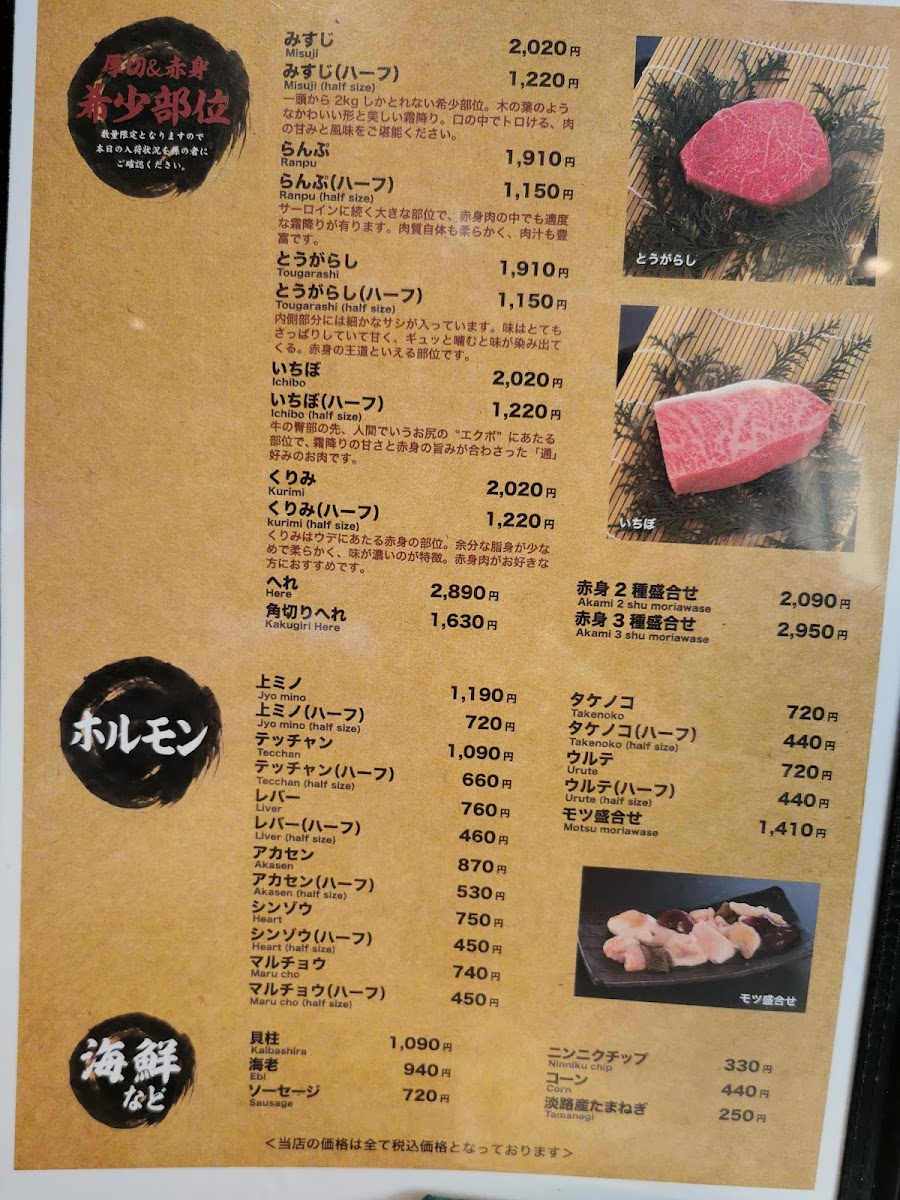 厚切&赤身
希少部位
数量限定となりますので
本日の入荷状況を係の者に
ご確認ください。
みすじ 2,020円
Misuji
みすじ(ハーフ) 1,220円
Misuji (half size)
一頭から 2kg しかとれない希少部位。木の葉のよう
なかわいい形と美しい霜降り。口の中でトロける、肉
の甘みと風味をご堪能ください。
らんぷ 1,910円
Ranpu
らんぷ(ハーフ) 1,150円
Ranpu (half size)
サーロインに続く大きな部位で、赤身肉の中でも適度
な霜降りが有ります。肉質自体も柔らかく、肉汁も豊
富です。
とうがらし 1,910円
Tougarashi
とうがらし(ハーフ) 1,150円
Tougarashi (half size)
内側部分には細かなサシが入っています。味はとても
さっぱりしていて甘く、ギュッと噛むと味が染み出て
くる。赤身の王道といえる部位です。
いちぼ 2,020円
Ichibo
いちぼ(ハーフ) 1,220円
Ichibo (half size)
牛の臀部の先、人間でいうお尻の“エクボ”にあたる
部位で、霜降りの甘さと赤身の旨みが合わさった「通」
好みのお肉です。
くりみ 2,020円
Kurimi
くりみ(ハーフ) 1,220円
kurimi (half size)
くりみはウデにあたる赤身の部位。余分な脂身が少な
めで柔らかく、味が濃いのが特徴。赤身肉がお好きな
方におすすめです。
へれ 2,890円
Here
角切りへれ 1,630円
Kakugiri Here
とうがらし
いちぼ
赤身2種盛合せ 2,090円
Akami 2 shu moriawase
赤身3種盛合せ 2,950円
Akami 3 shu moriawase
ホルモン
上ミノ 1,190円
Jyo mino
上ミノ(ハーフ) 720円
Jyo mino (half size)
テッチャン 1,090円
Tecchan
テッチャン(ハーフ) 660円
Tecchan (half size)
レバー 760円
Liver
レバー(ハーフ) 460円
Liver (half size)
アカセン 870円
Akasen
アカセン(ハーフ) 530円
Akasen (half size)
シンゾウ 750円
Heart
シンゾウ(ハーフ) 450円
Heart (half size)
マルチョウ 740円
Maru cho
マルチョウ(ハーフ) 450円
Maru cho (half size)
タケノコ 720円
Takenoko
タケノコ(ハーフ) 440円
Takenoko (half size)
ウルテ 720円
Urute
ウルテ(ハーフ) 440円
Urute (half size)
モツ盛合せ 1,410円
Motsu moriawase
モツ盛合せ
海鮮
など
貝柱 1,090円
Kaibashira
海老 940円
Ebi
ソーセージ 720円
Sausage
ニンニクチップ 330円
Ninniku chip
コーン 440円
Corn
淡路産たまねぎ 250円
Tamanegi
＜当店の価格は全て税込価格となっております＞